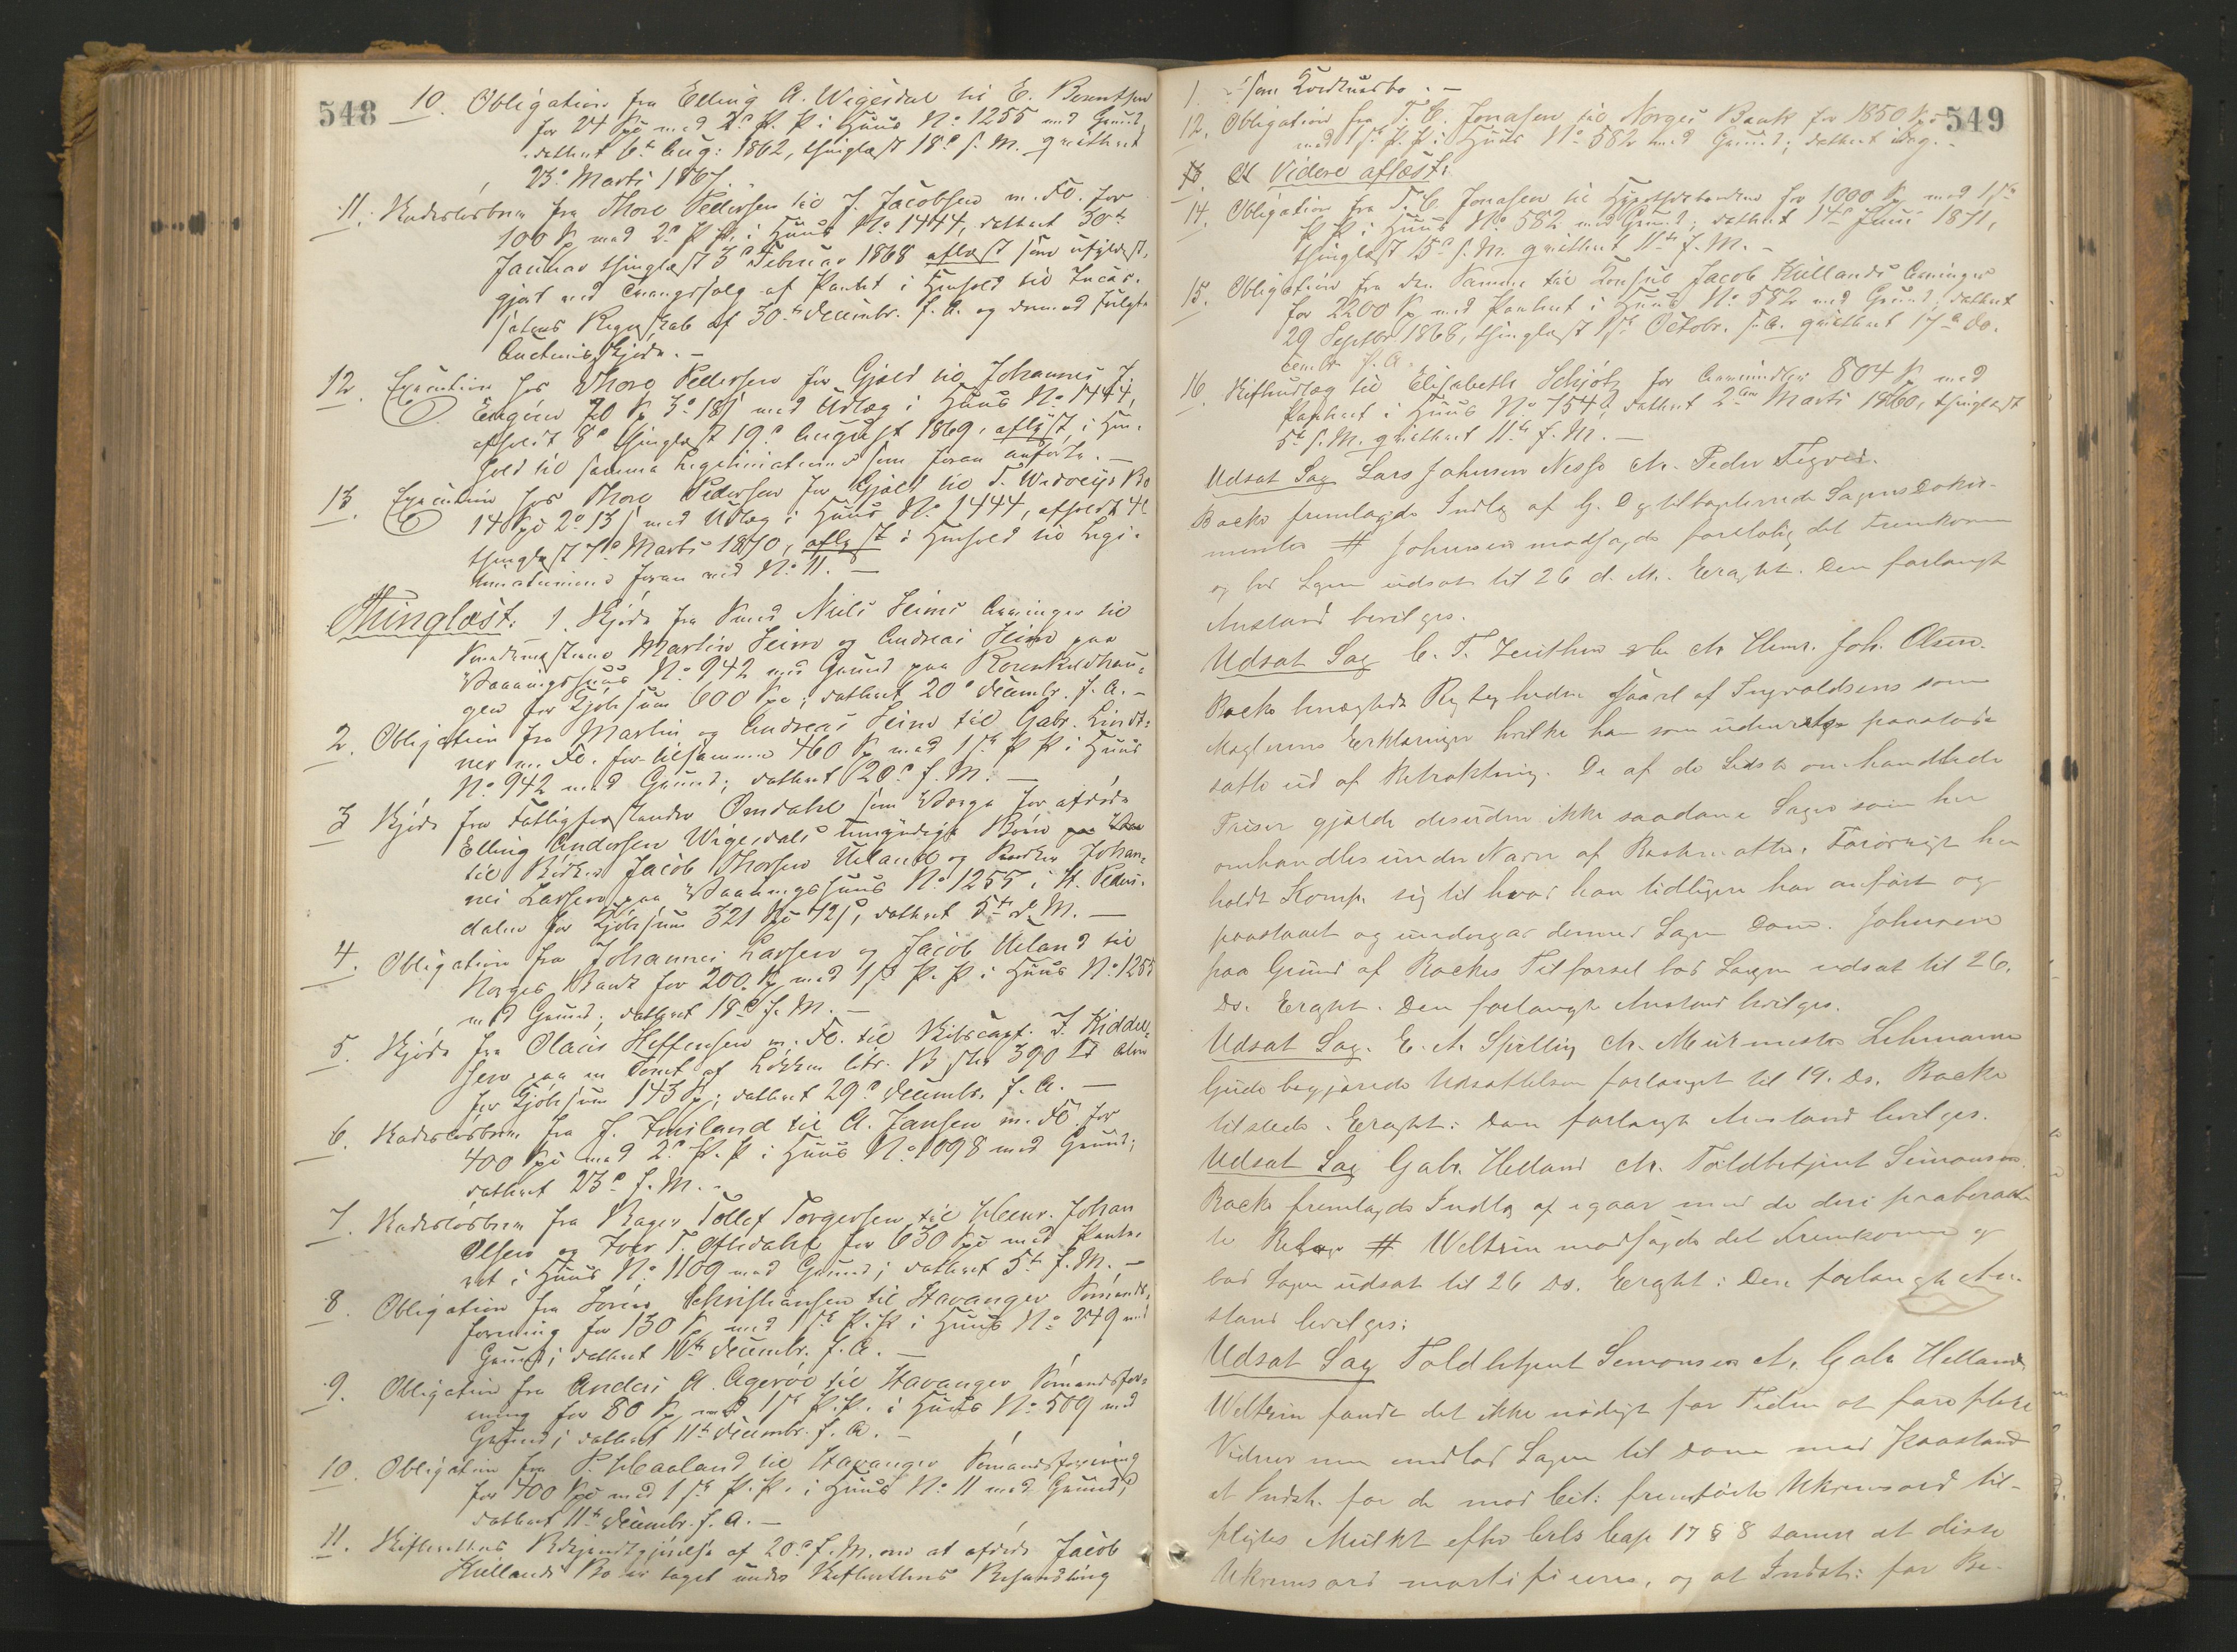 548
10. Obligation fra Elling A. Wigesdal til E. Berentsen
for 24 Spd med 2d P. P. i Huus No 1255 med Grund,
dateret 6te Aug: 1862, thinglæst 18d s. M. qvitteret
23d Marts 1867.
11. Kadeløsbrev fra Thore Pedersen til J. Jacobsen m. Fl. for
100 Sp med 2d P. P. i Huus No 1444, dateret 30te
Januar thinglæst 3d Februar 1868 aflæst som ufyldest-
gjort ved Tvangssalg af Pantet i Henhold til Incas-
satens Regnskab af 30te Decembr. f. A. og dermed fulgte
Auctionsskjøde. —
12. Execution hos Thore Pedersen for Gjæld til Johannes J.
20 Sp 3d 18s med Udlæg i Huus No 1444,
afholdt 8d thinglæst 19d August 1869, aflyst i Hen-
hold til samme Legitimationer som foran anførte. —
13. Execution hos Thore Pedersen for Gjæld til T. Bo
14 Spd 2d 13s med Udlæg i Huus No 1444, afholdt 4d
thinglæst 7de Marts 1870, aflyst i Henhold til Legi-
timationerne foran ved No 11. —
Thinglæst: 1. Skjøde fra Smed Niels Heims Arvinger til
Smedemestrene Martin Heim og Andreas Heim paa
Vaaningshuus No 942 med Grund paa Rosenkildehau-
gen for Kjøbesum 600 Spd; dateret 20d Decembr. f. A. —
2. Obligation fra Martin og Andreas Heim til Gabr. Lindt-
ner m. Fl. for tilsammen 460 Sp med 1ste P P i Huus
No 942 med Grund; dateret 20d f. M. —
3 Skjøde fra Fattigforstander Omdahl som Værge for afdøde
Elling Andersen Wigesdals umyndige Børn
til Bødker Jacob Thorsen Ueland og Johan-
nes Larsen paa Vaaningshuus No 1255 i St. Peders-
dalen for Kjøbesum 321 Spd 72s, dateret 5te d. M. —
4. Obligation fra Johannes Larsen og Jacob Ueland til
Norges Bank for 200 Sp med 1ste P. P. i Huus No 1255
med Grund, dateret 18d f. M. —
5. Skjøde fra Olaus Steffensen m. Fl. til Skibscapt. J. Kiddel-
sen paa en Tomt af Løkken litr. B stor 390 □ Alen
for Kjøbesum 143 Sp; dateret 29d Decembr. f. A. —
6. Kadeløsbrev fra J. til A. Jansen m. Fl. for
400 Spd med 2d P. P. i Huus No 1098 med Grund;
dateret 23d f. M. —
7. Kadeløsbrev fra Bager Tollef Torgersen til Henr. Johan
Olsen og Iver T. for 630 Spd med Pante-
ret i Huus No 1109 med Grund; dateret 5te f. M. —
8. Obligation fra Søren Christiansen til Stavanger Sømands-
forening for 130 Sp med 1ste P. P. i Huus No 249 med
Grund; dateret Decembr. f. A. —
9. Obligation fra Anders A. Agerøe til Stavanger Sømandsfor-
ening for 80 Sp med 1ste P. P. i Huus No 509 med
Grund; dateret 11te Decembr. f. A. —
10. Obligation fra P. Haaland til Stavanger Sømandsforening
for 400 Spd med 1ste P. P. i Huus No 11 med Grund;
dateret 11te Decembr. f. A. —
11. Skifterettens Bekjendtgjørelse af 20d f. M. om at afdøde Jacob
Kiellands Bo er taget under Skifterettens Behandling
549
som
12. Obligation fra T. C. Jonasen til Norges Bank for 1850 Spd
med 1ste P. P. i Huus No 582 med Grund; dateret idag. —
13. Videre aflæst:
14. Obligation fra T. C. Jonasen til Hypothekbanken for 1000 Sp med 1ste
P. P. i Huus No 582 med Grund; dateret 14d Juni 1871,
thinglæst 15d s. M. qvitteret 11te f. M. —
15. Obligation fra den Samme til Consul Jacob Kiellands Arvinger
for 2200 Sp med Panteret i Huus No 582 med Grund; dateret
29 Septbr 1868, thinglæst 1ste Octobr. s. A. qvitteret 17de De-
cembr f. A.
16. Skifteudlæg til Elisabeth Schjøtz for Arvemidler 804 Sp med
Panteret i Huus No 754, dateret 2den Marts 1860, thinglæst
5te s. M. qvitteret 11te f. M. —
Udsat Sag Lars Johnsen Nessø ctr. Peder Tegnes.
Backe fremlagde Indlæg af G. D og tilbageleverede Sagens Doku-
menter # Johnsen modsagde foreløbig det Fremkomne
og bad Sagen udsat til 26 d. M. Eragtet. Den forlangte
Anstand bevilges.
Udsat Sag C. T. Zeuthen ctr Henr. Joh. Olsen.
Backe benægtede Rigtigheden saavel af Ingvaldsens som
Maglerens Erklæringer hvilke han som udenretlige paastode
satte ud af Betraktning. De af de Sidste omhandlede
Priser gjælde desuden ikke saadane Sager som her
omhandles under Navn af Bastmatter. Forøvrigt hen
holdt Komp. sig til hvad han tidligere har anført og
paastaaet og undergav dermed Sagen Dom. Johnsen
paa Grund af Backes Tilførsel bad Sagen udsat til 26.
ds. Eragtet. Den forlangte Anstand bevilges.
Udsat Sag. E. A. Spelling ctr. Muurmester Lehmann
Gude begjærede Udsættelsen forlænget til 19. ds. Backe
tilstede. Eragtet: Den forlangte Anstand bevilges.
Udsat Sag Gabr. Helland ctr. Toldbetjent Simonsen.
Backe fremlagde Indlæg af igaar med de deri paaberaab-
te Bilage # Weltzin modsagde det Fremkomne og
bad Sagen udsat til 26 ds. Eragtet: Den forlangte An-
stand bevilges:
Udsat Sag Toldbetjent Simonsen ctr. Gabr Helland
Weltzin fandt det ikke nødigt for Tiden at føre flere
Vidner men indlod Sagen til Dom med Paastand
at Indst. for de mod Cit: fremførte Ukvemsord til-
pligtes Mulkt efter Crls Cap 17 § 8 samt at disse
Ukvemsord mortificeres, og at Indst: for Be-